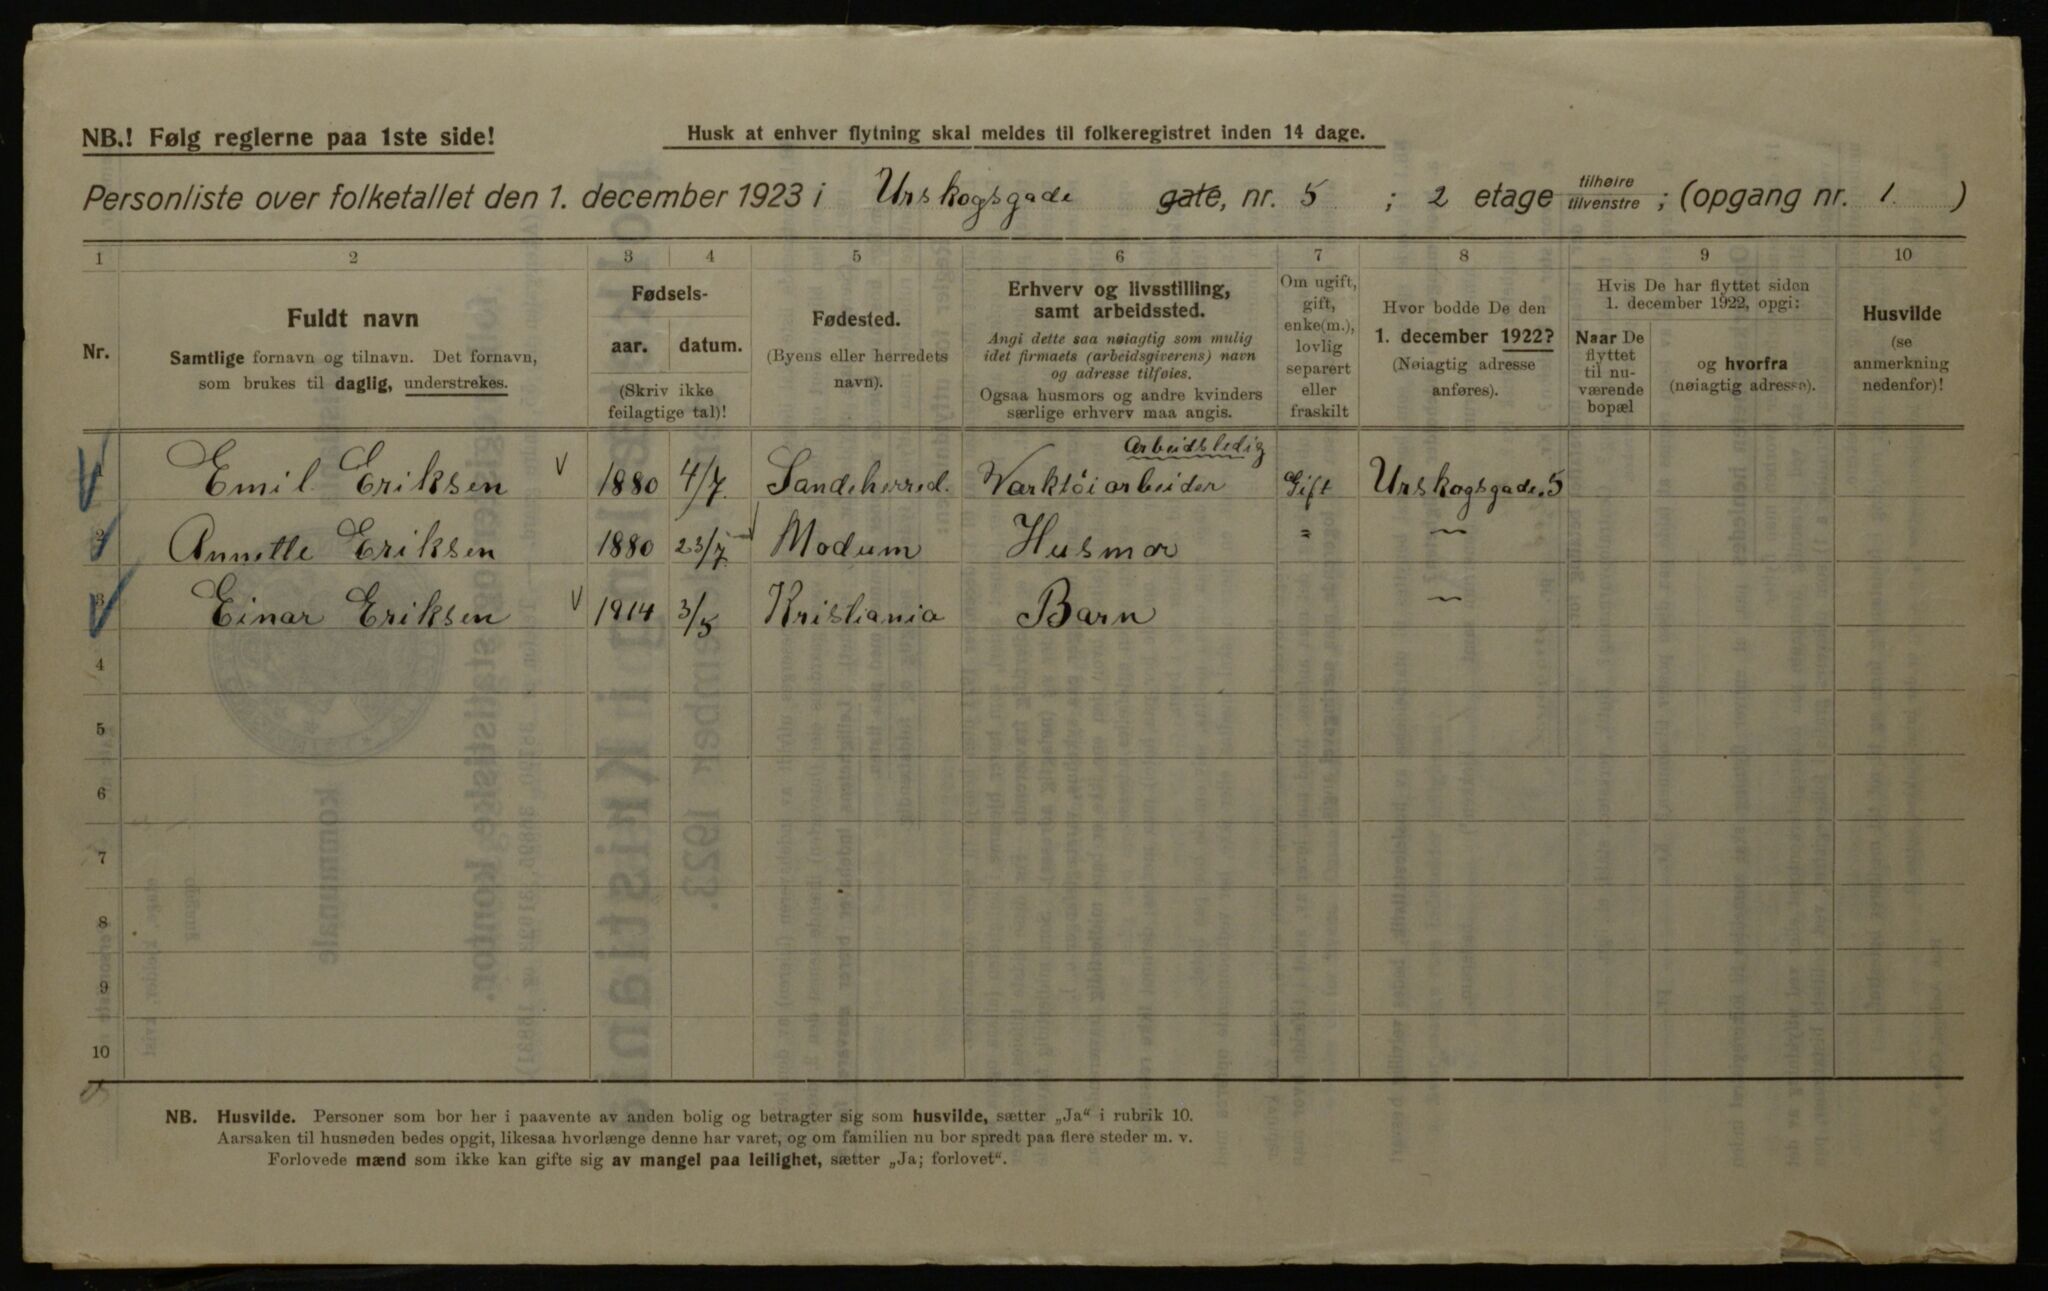 NB.! Følg reglerne paa 1ste side!
Husk at enhver flytning skal meldes til folkeregistret inden 14 dage.
Personliste over folketallet den 1. december 1923 i Urskogsgade gate, nr. 5 ; 2 etage tilhøire tilvenstre ; (opgang nr. 1 )
1 2 3 4 5 6 7 8 9 10
Nr.
Fuldt navn
Samtlige fornavn og tilnavn. Det fornavn,
som brukes til daglig, understrekes.
Fødsels-
aar. datum.
(Skriv ikke
feilagtige tal)!
Fødested.
(Byens eller herredets
navn).
Erhverv og livsstilling,
samt arbeidssted.
Angi dette saa nøiagtig som mulig
idet firmaets (arbeidsgiverens) navn
og adresse tilføies.
Ogsaa husmors og andre kvinders
særlige erhverv maa angis.
Om ugift,
gift,
enke(m.),
lovlig
separert
eller
fraskilt
Hvor bodde De den
1. december 1922?
(Nøiagtig adresse
anføres).
Hvis De har flyttet siden
1. december 1922, opgi:
Naar De
flyttet
til nu-
værende
bopæl
og hvorfra
(nøiagtig adresse).
Husvilde
(se
anmerkning
nedenfor)!
Arbeidsledig
1 Emil Eriksen 1880 4/7 Sandeherred. Varktöiarbeider Gift Urskogsgade 5
2 Annette Eriksen 1880 23/7 Modum Husmor " 〃
3 Einar Eriksen 1914 3/5 Kristiania Barn 〃
4
5
6
7
8
9
10
NB. Husvilde. Personer som bor her i paavente av anden bolig og betragter sig som husvilde, sætter „Ja“ i rubrik 10.
Aarsaken til husnøden bedes opgit, likesaa hvorlænge denne har varet, og om familien nu bor spredt paa flere steder m. v.
Forlovede mænd som ikke kan gifte sig av mangel paa leilighet, sætter „Ja; forlovet“.